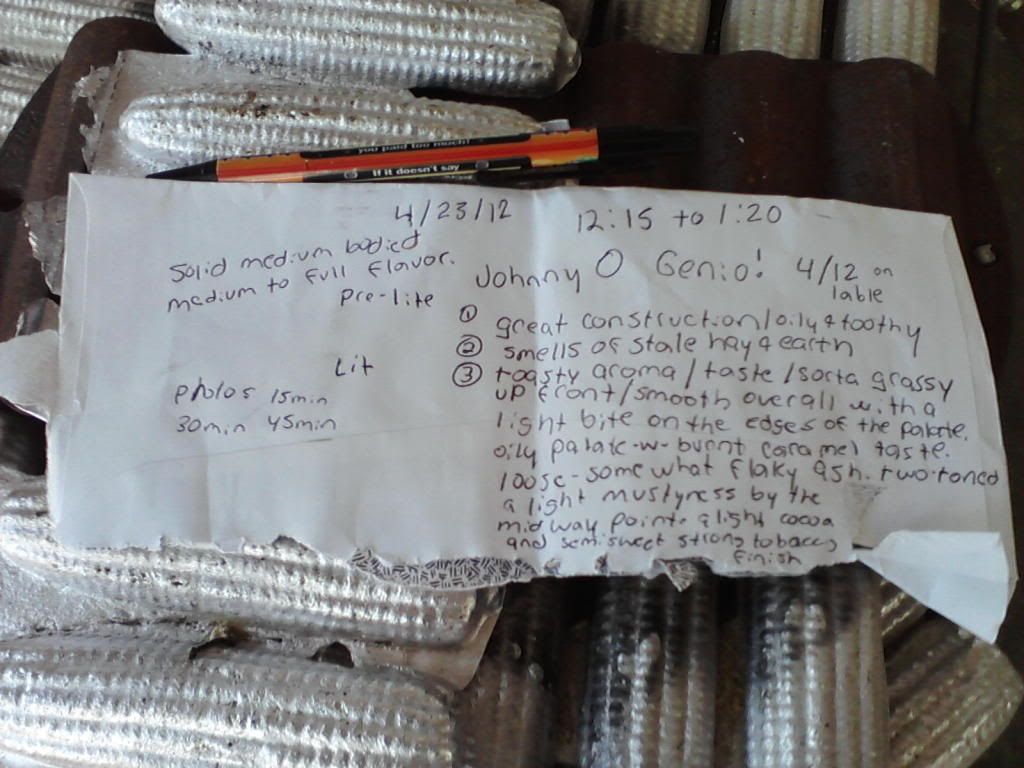 you paid too much!
If it doesn't say
4/23/12
12:15 to 1:20
Solid medium bodied
medium to full flavor.
Johnny O Genio!
4/12 on
lable
Pre-lite
① great construction/oily & toothy
② smells of stale hay & earth
Lit
③ toasty aroma/taste/sorta grassy
up front/smooth overall with a
light bite on the edges of the palate.
oily palate-w-burnt caramel taste.
loose-some what flaky ash. two-toned
a light mustyness by the
midway point. a light cocoa
and semisweet strong tobacco
finish
photos 15min
30min 45min